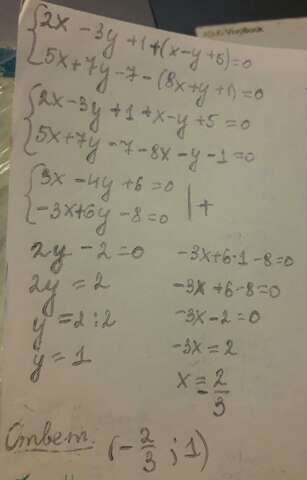 {2x - 3y + 1 + (x - y + 5) = 0
5x + 7y - 7 - (8x + y + 1) = 0
{2x - 3y + 1 + x - y + 5 = 0
5x + 7y - 7 - 8x - y - 1 = 0
{3x - 4y + 6 = 0
-3x + 6y - 8 = 0 | +
2y - 2 = 0
2y = 2
y = 2 : 2
y = 1
-3x + 6·1 - 8 = 0
-3x + 6 - 8 = 0
-3x - 2 = 0
-3x = 2
x = -2/3
Ответ. (-2/3 ; 1)